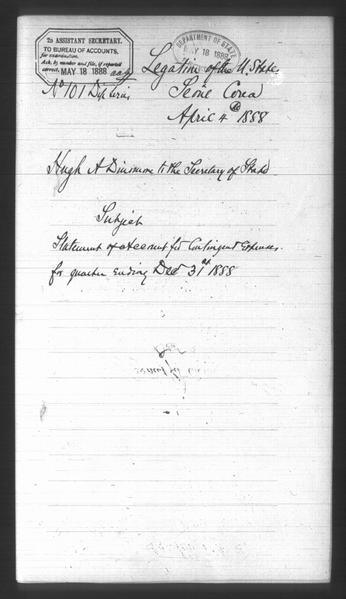 2D ASSISTANT SECRETARY.
TO BUREAU OF ACCOUNTS,
for examination.
Ack. by number and file, if reported
correct. MAY 18 1888
DEPARTMENT OF STATE
MAY 18 1888
Legation of the U. States
Seoul Corea
No 101 Dip Series
April 4th 1888
Hugh A Dinsmore to the Secretary of State
Subject
Statement of account for Contingent Expenses.
for quarter ending Dec 31st 1888